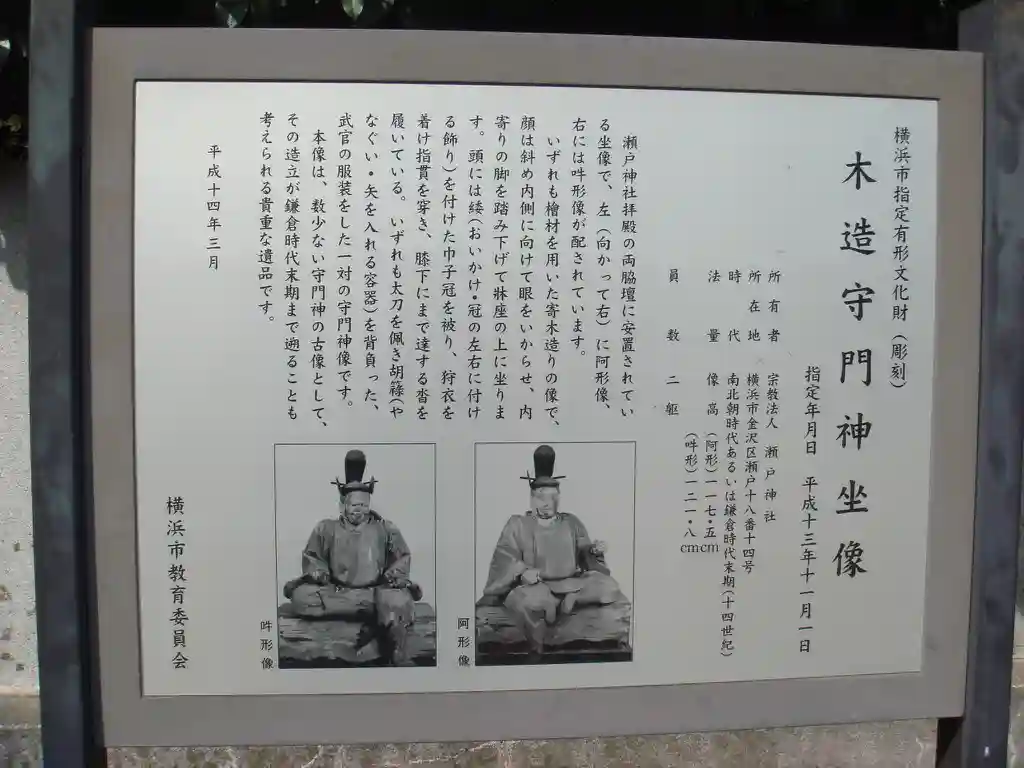 横浜市指定有形文化財（彫刻）
木造守門神坐像
指定年月日　平成十三年十一月一日
所有者　宗教法人　瀬戸神社
所在地　横浜市金沢区瀬戸十八番十四号
時代　南北朝時代あるいは鎌倉時代末期（十四世紀）
法量　像高（阿形）一一七・五cm
（吽形）一二一・八cm
員数　二躯
瀬戸神社拝殿の両脇壇に安置されてい
る坐像で、左（向かって右）に阿形像、
右には吽形像が配されています。
いずれも檜材を用いた寄木造りの像で、
顔は斜め内側に向けて眼をいからせ、内
寄りの脚を踏み下げて牀座の上に坐りま
す。頭には緌（おいかけ・冠の左右に付け
る飾り）を付けた巾子冠を被り、狩衣を
着け指貫を穿き、膝下にまで達する沓を
履いている。いずれも太刀を佩き胡籙（や
なぐい・矢を入れる容器）を背負った、
武官の服装をした一対の守門神像です。
本像は、数少ない守門神の古像として、
その造立が鎌倉時代末期まで遡ることも
考えられる貴重な遺品です。
平成十四年三月
阿形像
吽形像
横浜市教育委員会